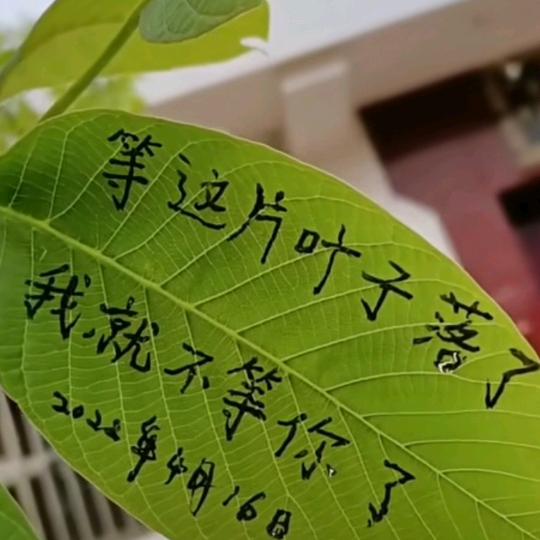 等这片叶子落了
我就不等你了
2022年4月16日